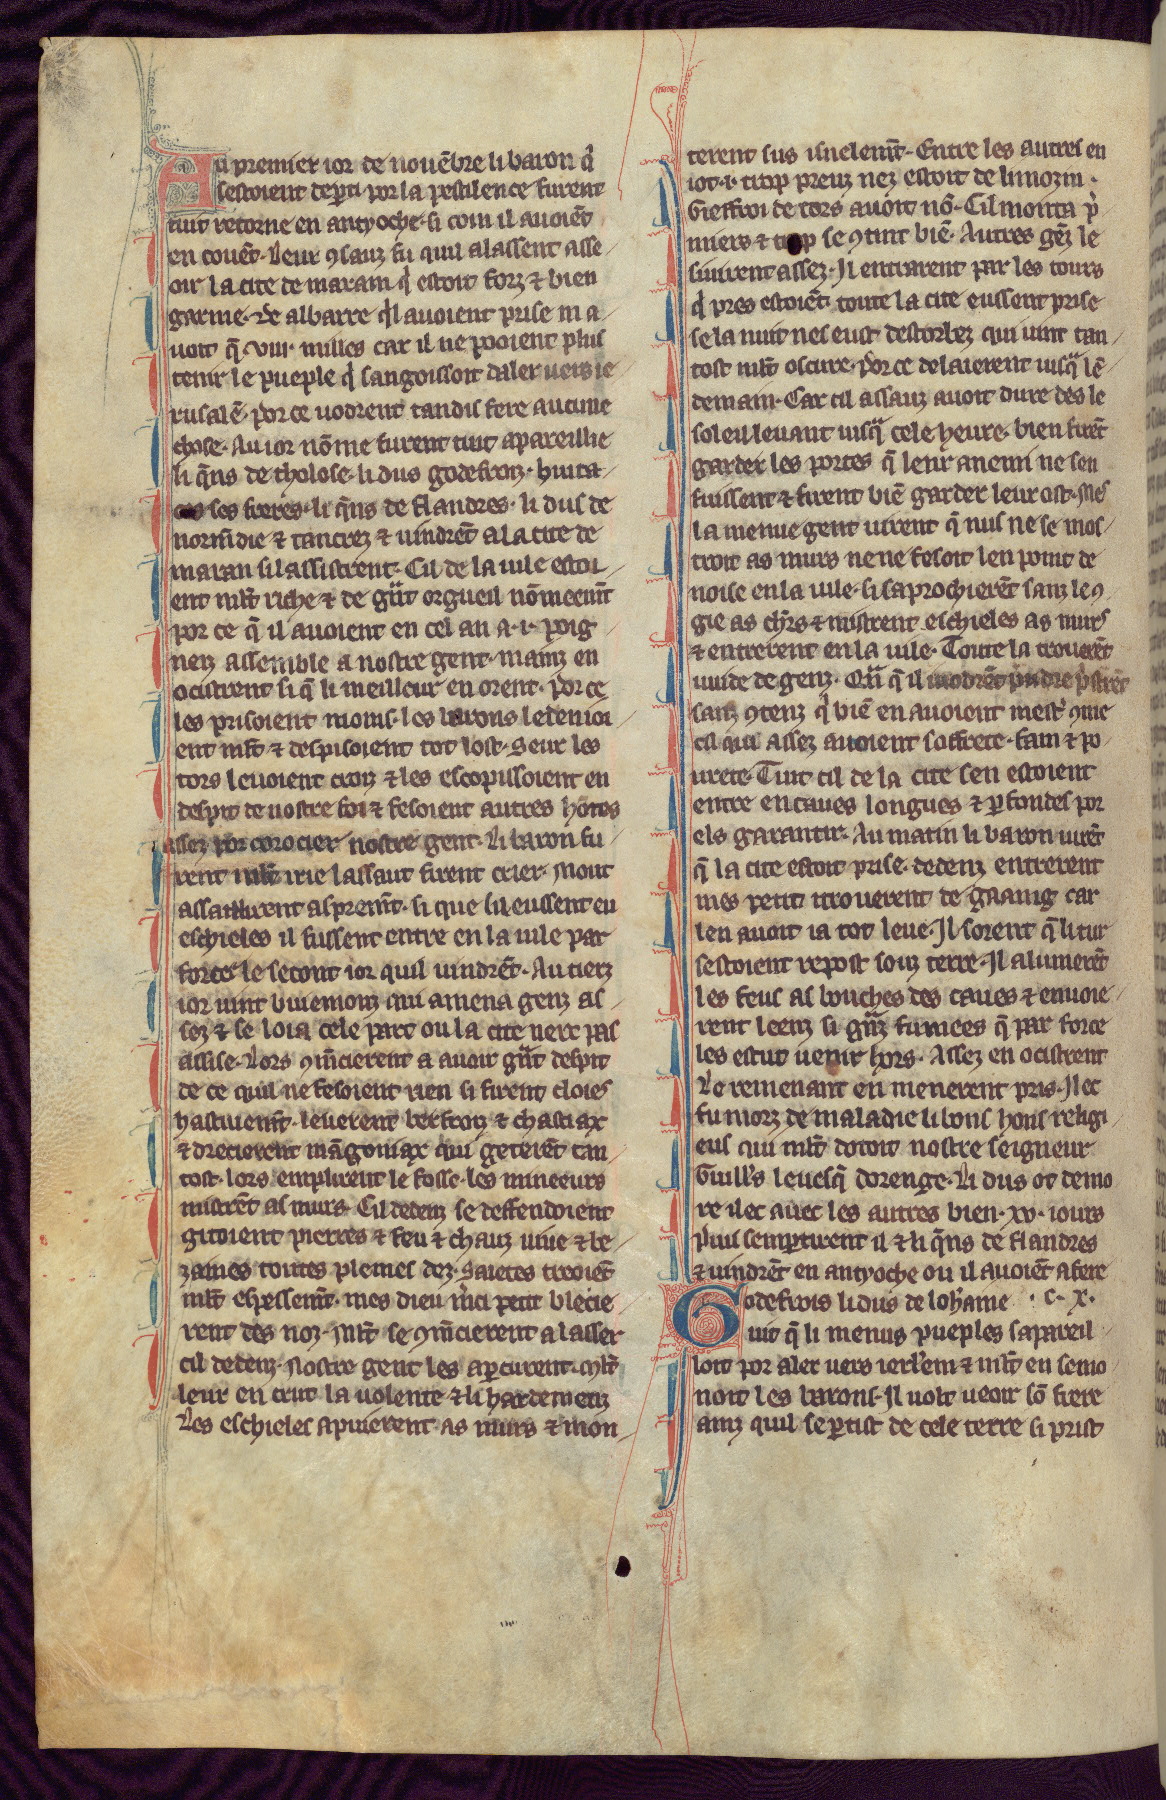 Au premier ior de nouēbre li baron q̇
sestoient depti por la pestilence furent
tuit retorne en antyoche· si com il auoiēt
en couēt· Leur ꝯsauz fu quil alassent asse
oir la cite de maram q̇ estoit forz ⁊ bien
garnie· De albarre q̇l auoient prise ni a
uoit q̄ .viii. milles car il ne pooient plus
tenir le pueple q̇ sangoissoit daler uers ie
rusalē· por ce uodrent tandis fere aucune
chose· Au ior nōme furent tuit apareillie
li q̄ns de tholose· li dus godefroiz· huita
ces ses freres· li q̄ns de flandres· li dus de
normēdie ⁊ tancrez ⁊ uindrēt a la cite de
maran si lassistrent· Cil de la uile estoi
ent mlt̄ riche ⁊ de gᵃt orgueil nōmeemt̄
por ce q̄ il auoient en cel an a ·i· poig
neiz assemble a nostre gent· mainz en
ocistrent si q̄ li meilleur en orent· por ce
les prisoient moins· les barons ledenioi
ent mlt̄ ⁊ despisoient tot lost· Seur les
tors leuoient croiz ⁊ les escopissoient en
despit de nostre foi ⁊ fesoient autres hōtes
assez por corocier nostre gent· Li baron fu
rent mlt̄ irie lassaut firent crier· Mout
assaillirent aspremt̄· si que sil eussent eu
eschieles il fussent entre en la uile par
force le secont ior quil uindrēt· Au tierz
ior uint buiemonz qui amena genz as
sez ⁊ se loia cele part ou la cite nere pas
assise· Lors ꝯmēcierent a auoir gᵃt despit
de ce quil ne fesoient rien si firent cloies
hastiuemt̄· leuerent berfroiz ⁊ chastiax
⁊ drecierent māgoniax qui geterēt tan
tost· lors emplirent le fosse· les mineeurs
mistrēt as murs· Cil dedenz se deffendoient
gitoient pierres ⁊ feu ⁊ chauz uiue ⁊ be
zaines toutes plenies dez· Saietes treoiēt
mlt̄ espessemt̄· mes dieu m̄ci petit blecie
rent des noz· Mlt̄ se ꝯmēcierent a lasser
cil dedenz· Nostre gent les apercurent· mlt̄
leur en crut la uolente ⁊ li hardemenz
Les eschieles apuierent as murs ⁊ mon
terent sus isnelemt̄· Entre les autres en
iot ·i· trop preuz nez estoit de limozin·
Gieffroi de tors auoit nō· Cil monta p̄
miers ⁊ trop se ꝯtint biē· Autres gēz le
siuirent assez· Il entrarent par les tours
q̇ pres estoiēt· toute la cite eussent prise
se la nuit nes eust destorbez qui uint tan
tost mlt̄ oscure· por ce delaierent iusqᵃ lē
demain· Car cil assauz auoit dure des le
soleil leuant iusqᵃ cele heure· bien firēt
garder les portes q̄ leur anemi ne sen
fuissent ⁊ firent biē garder leur ost· Mes
la menue gent uirent q̄ nus ne se mos
troit as murs ne ne fesoit len point de
noise en la uile· si saprochierēt sanz le ꝯ
gie as ch̄rs ⁊ mistrent eschieles as murs
⁊ entrerent en la uile· Toute la trouerēt
uuide de genz· Qᵃn q̄ il uodrēt prēdre pristrēt
sanz ꝯtenz q̇ biē en auoient mest̄ ꝯme
cil qui assez auoient soffrete· fain ⁊ po
urete· Tuit cil de la cite sen estoient
entre en caues longues ⁊ perfondes por
els garantir· Au matin li baron uirēt
q̄ la cite estoit prise· dedenz entrerent
mes petit i trouerent de gaaing car
len auoit ia tot leue· Il sorent q̄ li tur
sestoient repost souz terre· Il alumerēt
les feus as bouches des caues ⁊ enuoie
rent leenz si gᵃnz fumees q̄ par force
les estut uenir hors· Assez en ocistrent
Le remenant en menerent pris· Ilec
fu morz de maladie li bons hons religi
eus qui mlt̄ dotoit nostre seigneur
Guill's leuesq̄ dorenge· Li dus ot demo
re ilec auec les autres bien ·xv· iours
puis sempartirent il ⁊ li q̄ns de flandres
⁊ uindrēt en antyoche ou il auoiēt a fere
Godefrois li dus de loheraine ·c· x·
uit q̄ li menus pueples sapareil
loit por aler uers ierl'em ⁊ mlt̄ en semo
noit les barons· Il uolt ueoir sō frere
ainz quil se ptist de cele terre si prist